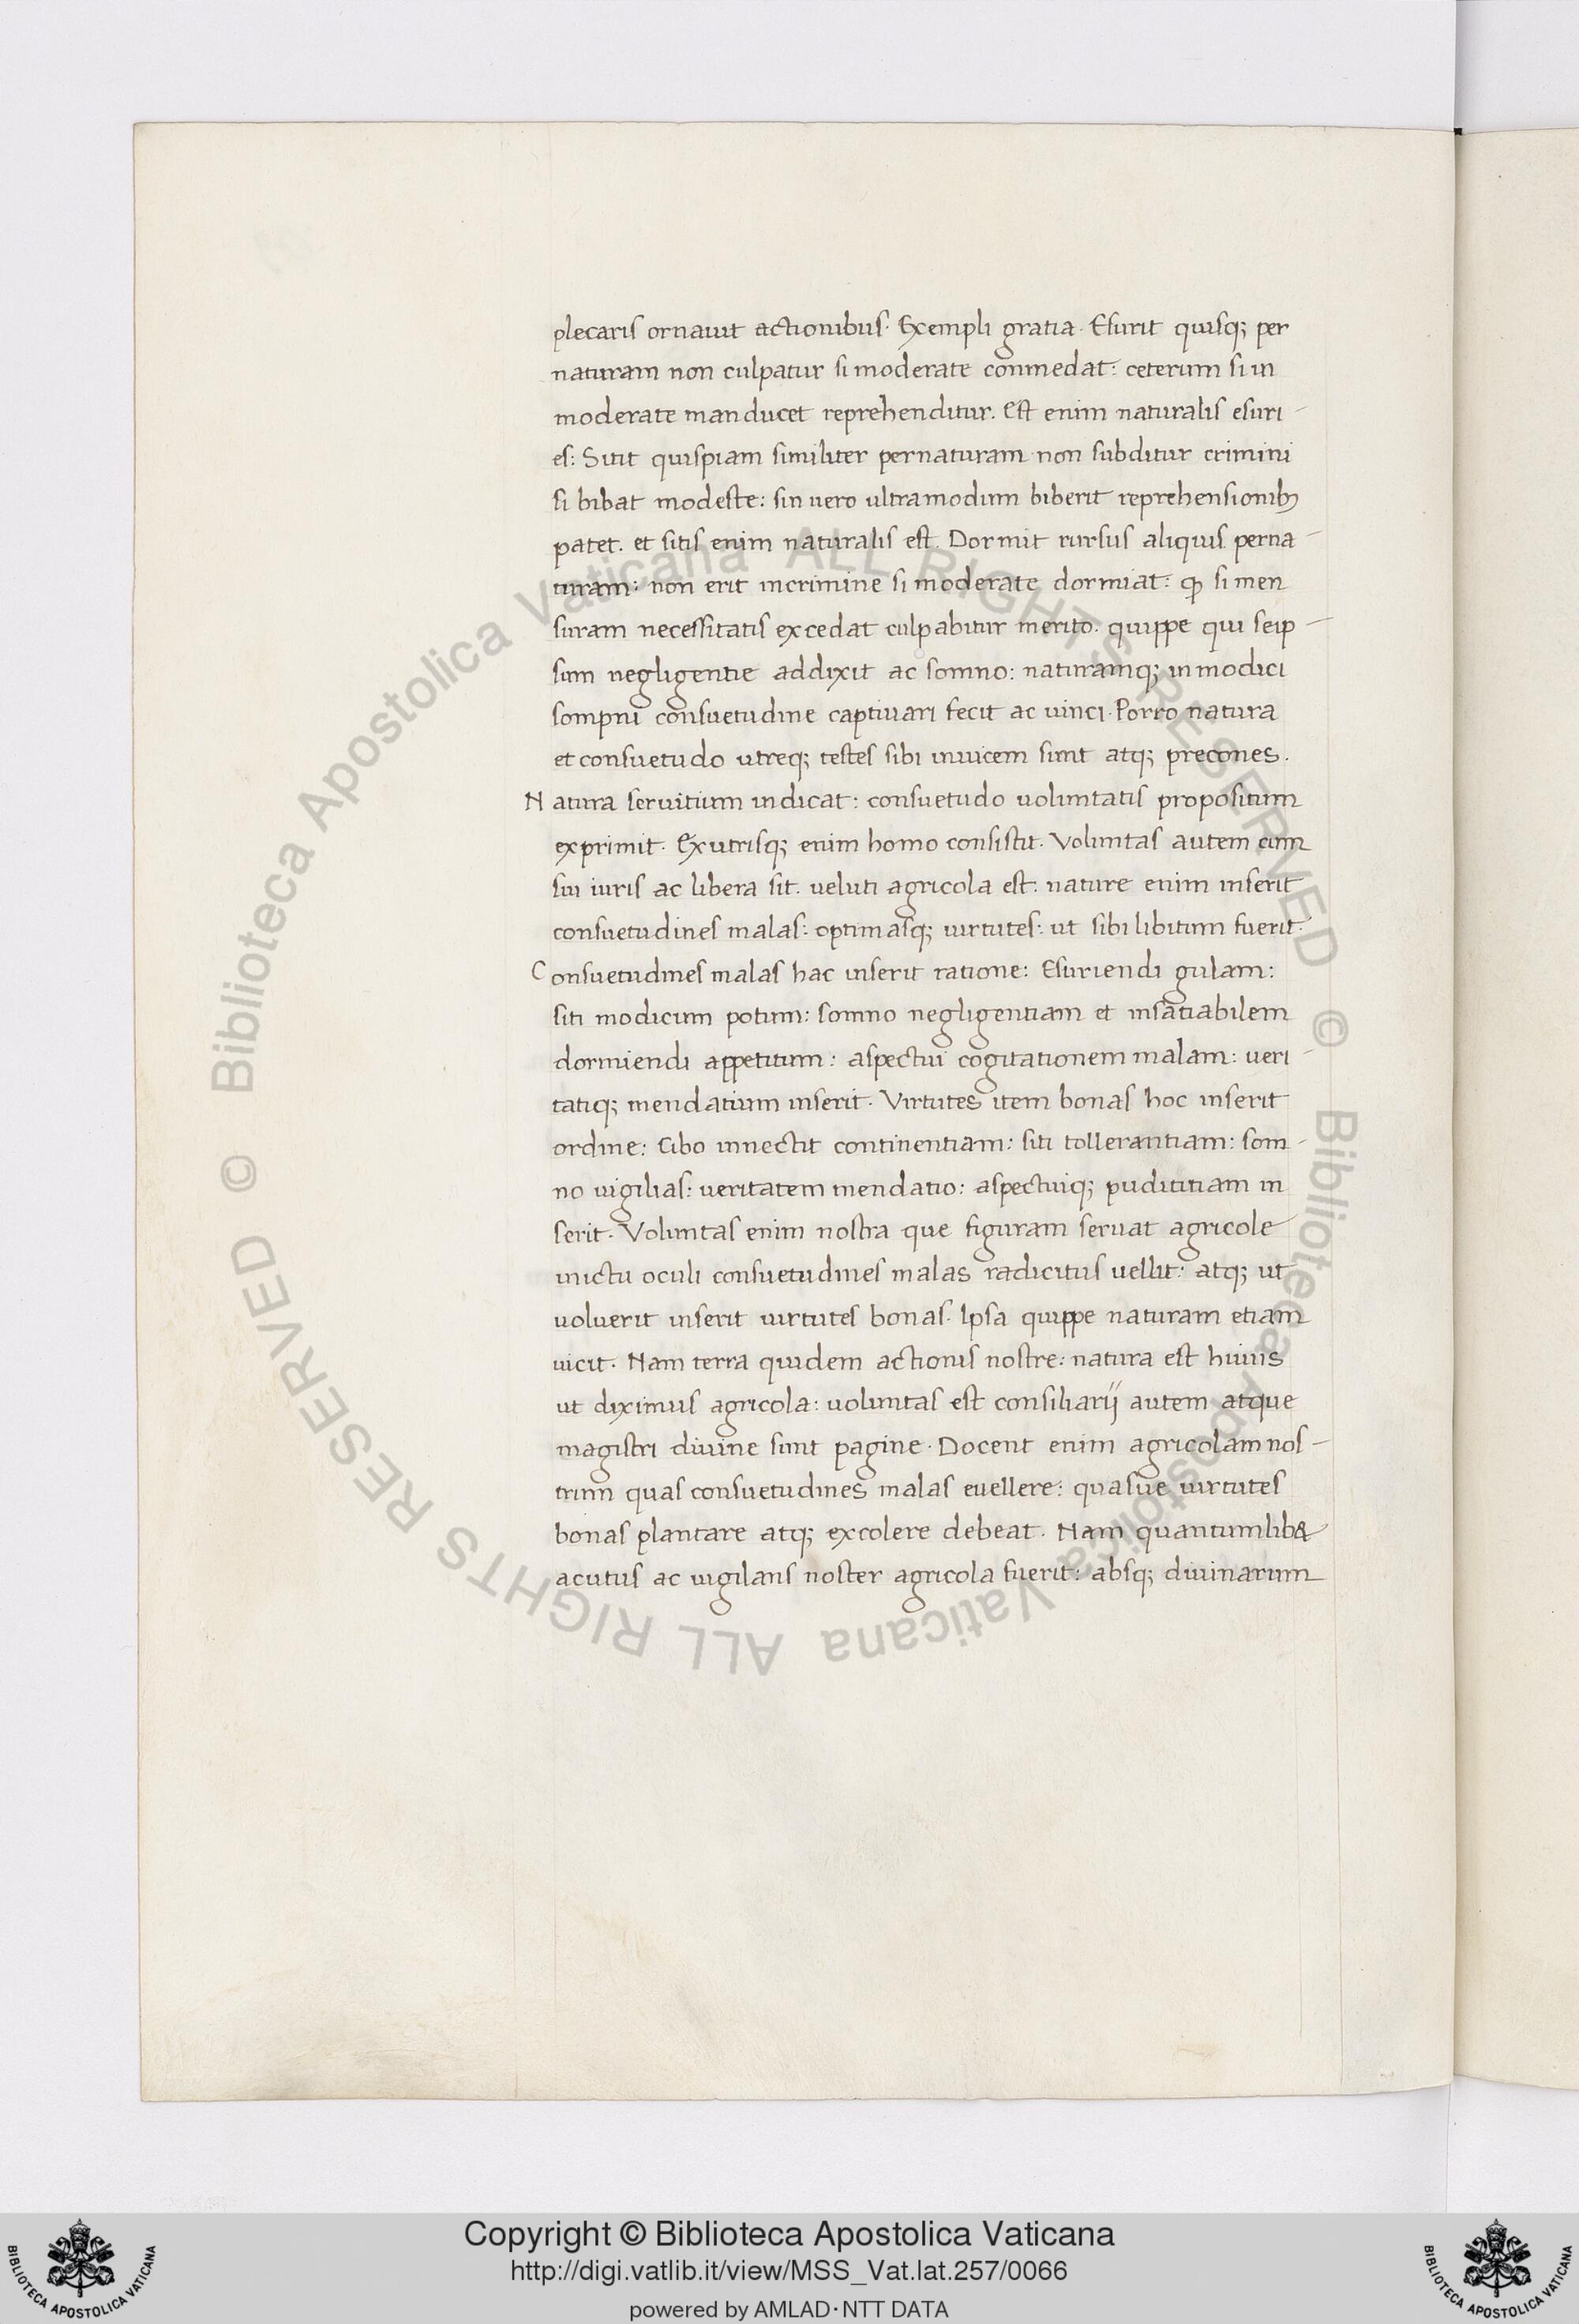 plecaris ornauit actionibus. Exempli gratia. Esurit quisq; per
naturam non culpatur si moderate conmedat: ceterum si in
moderate manducet reprehenditur. Est enim naturalis esuri-
es: Sitit quispiam similiter pernaturam non subditur crimini
si bibat modeste: sin uero ultramodum biberit reprehensionib;
patet. et sitis enim naturalis est. Dormit rursus aliquis perna-
turam: non erit incrimine si moderate dormiat: si men
suram necessitatis excedat culpabitur merito. quippe qui seip-
sum negligentie addixit ac somno: naturamq; inmodici
sompni consuetudine captiuari fecit ac uinci. Porro natura
et consuetudo utreq; testes sibi inuicem sunt atq; precones.
Natura seruitium indicat: consuetudo uoluntatis propositum
exprimit. Exutrisq; enim homo consistit. Voluntas autem cum
sui iuris ac libera sit. ueluti agricola est. nature enim inserit
consuetudines malas: optimasq; uirtutes: ut sibi libitum fuerit.
Consuetudines malas hac inserit ratione: Esuriendi gulam:
siti modicum potum: somno negligentiam et insatiabilem
dormiendi appetitum: aspectui cogitationem malam: ueri-
tatiq; mendatium inserit. Virtutes item bonas hoc inserit
ordine: Cibo innectit continentiam: siti tollerantiam: som-
no uigilias: ueritatem mendatio: aspectuiq; pudititiam in
serit. Voluntas enim nostra que figuram seruat agricole
inictu oculi consuetudines malas radicitus uellit: atq; ut
uoluerit inserit uirtutes bonas. Ipsa quippe naturam etiam
uicit. Nam terra quidem actionis nostre: natura est huius
ut diximus agricola: uoluntas est consiliarij autem atque
magistri diuine sunt pagine. Docent enim agricolam nos-
trum quas consuetudines malas euellere: quasue uirtutes
bonas plantare atq; excolere debeat. Nam quantumlib&
acutus ac uigilans noster agricola fuerit: absq; diuinarum
Biblioteca Apostolica Vaticana ALL RIGHTS RESERVED ©
Biblioteca Apostolica Vaticana ALL RIGHTS RESERVED ©
Copyright © Biblioteca Apostolica Vaticana
http://digi.vatlib.it/view/MSS_Vat.lat.257/0066
powered by AMLAD·NTT DATA
BIBLIOTECA APOSTOLICA VATICANA
BIBLIOTECA APOSTOLICA VATICANA